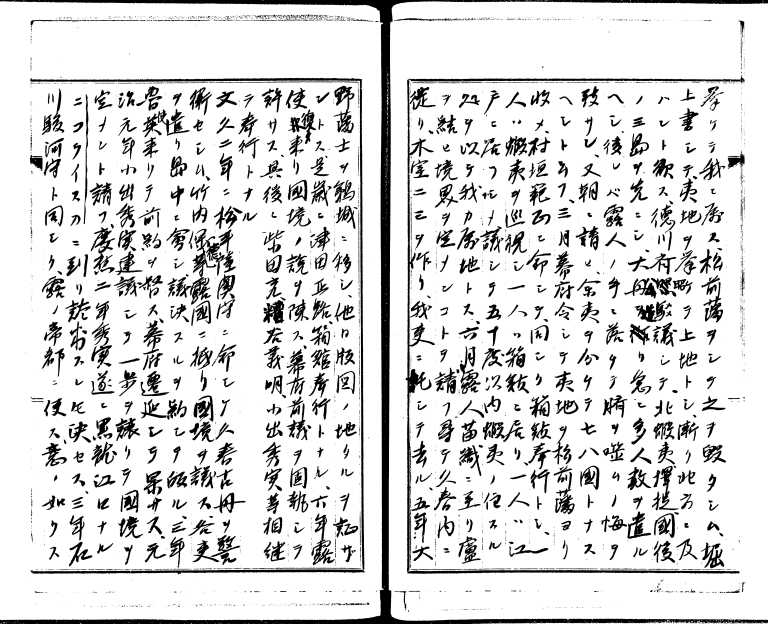 挙ケテ我ニ属ス、松前藩ヲシテ之ヲ毀タシム、堀
上書シテ、夷地ヲ挙ケテ上地トシ、漸ク北方ニ及
ハント欲ス、徳川府議シテ、北蝦夷、択捉国後
ノ三島ヲ先ニシ、大舟ヲ作リ、急ニ多人数ヲ遣ル
ヘシ、後レハ露人ノ手ニ落ケテ臍ヲ噬ムノ悔ヲ
致サン、又朝ニ請ヒ、全夷ヲ分ケテ七八国トナス
ヘシト云フ、三月幕府令シテ夷地ヲ松前藩ヨリ
収メ、村垣範正ニ命シテ、同シク箱館奉行トシ、
一人ハ蝦夷ヲ巡視シ、一人ハ箱館ニ居リ、一人ハ江
戸ニ居ラシメ、議シテ五十度以内蝦夷ノ住スル
処ヲ以テ我カ属地トス、六月露人苗機ニ至リ、盧
ヲ結ヒ境界ヲ定メンコトヲ請フ、尋テ久春内ニ
徙リ、木室二三ヲ作リ、我吏ニ託シテ去ル、五年大
野藩士ヲ鵜城ニ移シ、他日版図ノ地タルヲ知ラ
ントス、是歳ニ津田正路箱館奉行トナル、六年露
使復タ来リ国境ノ説ヲ陳ス、幕府前議ヲ固執シテ
許サス、其後ニ柴田 小出秀実等相継
テ奉行トナル
文久二年ニ松平 ニ命シテ久春古丹ヲ警
衛セシム、竹内保徳露国ニ抵リ国境ヲ議ス、各吏
ヲ遣リ島中ニ会シ議決スルヲ約シテ帰ル、三年
魯英来リテ前約ヲ督ス、幕府遷延シテ果サス、元
治元年小出秀実建議シテ一歩ヲ譲リテ国境ヲ
定メント請フ、慶応二年秀実遂ニ黒龍江口ナル
ニコライスカニ到リ談判スレトモ決セス、三年石
川駿河守ト同シク、露ノ帝都ニ使ス、意ノ如クス